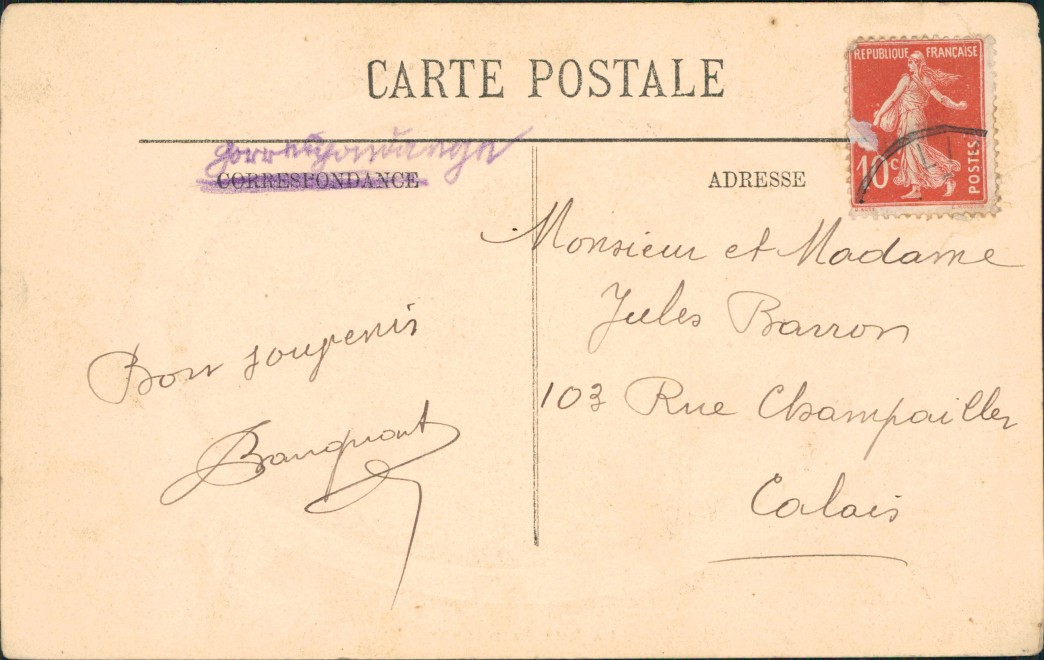 CARTE POSTALE
REPUBLIQUE FRANÇAISE
10c POSTES
Correspondance
CORRESPONDANCE
ADRESSE
Monsieur et Madame
Jules Barron
103 Rue Champailler
Calais
Bon souvenir